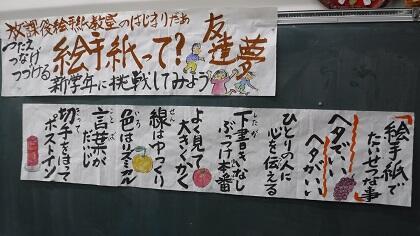 放課後絵手紙教室のはじまりだぁ
つたえ
つなげ
つづける
絵手紙って?
友達夢
新学年に挑戦してみよう
絵手紙で
たいせつな事
ヘタでいい
ヘタがいい
ひとりの人に
心を伝える
下書きなし
したが
ぶっつけ本番
よく見て
大きくかく
線はゆっくり
せん
色はリズミカル
いろ
言葉が
ことば
だいじ
切手をはって
きって
ポストイン